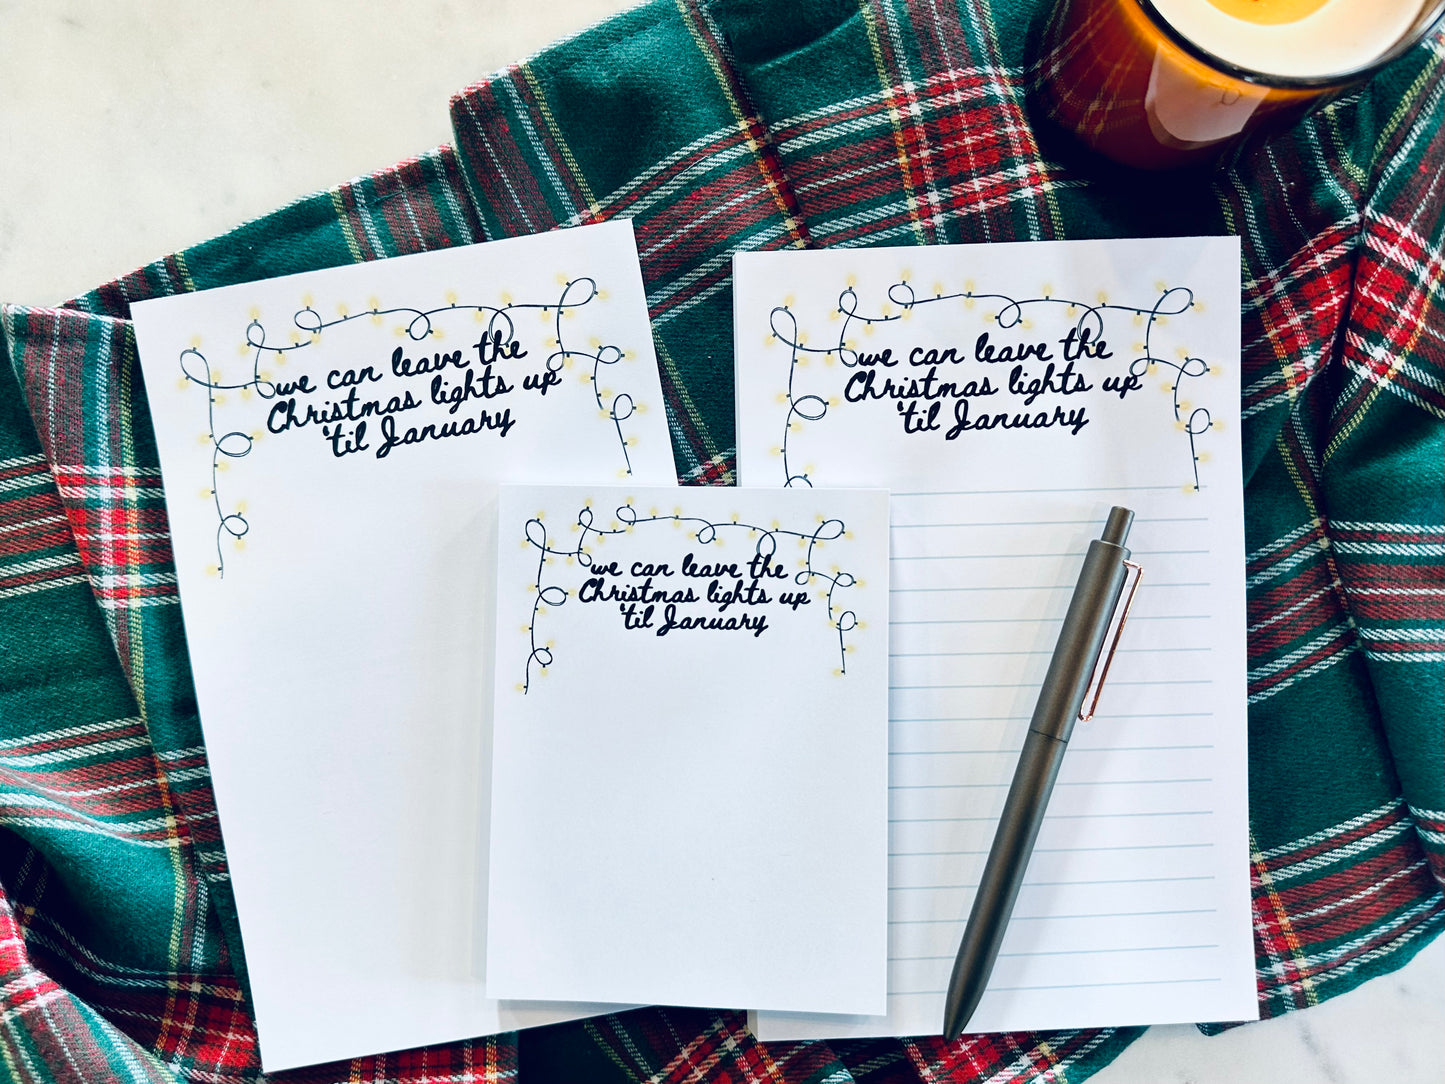 we can leave the
Christmas lights up
'til January
we can leave the
Christmas lights up
'til January
we can leave the
Christmas lights up
'til January